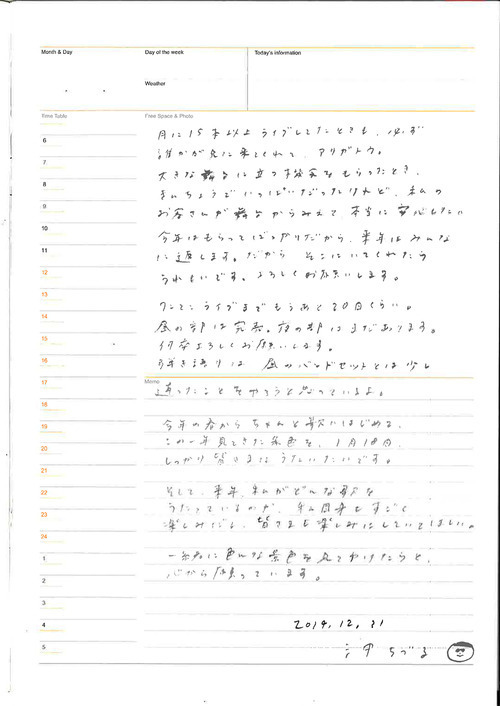 Month & Day
Day of the week
Today's information
Weather
Time Table
Free Space & Photo
月に15本以上ライブしてたときも、必ず
誰かが見に来てくれて、アリガトウ。
大きな舞台に立つ機会をもらったとき、
きんちょうでいっぱいだったけれど、私の
お客さんが舞台からみえて、本当に安心したい
今年はもらってばっかりだから、来年はみんな
に返します。だから そこにいてくれたら
うれしいです。よろしくお願いします。
ワンマンライブまでもうあと20日くらい。
昼の部は完売。夜の部はまだあります。
何卒よろしくお願いします。
弾き語りは 昼のバンドセットとは少し
違ったことをやろうと思っているよ。
今年の春から ちゃんと歌いはじめる、
この一年見てきた景色を、1月18日、
しっかり皆さまにうたいたいです。
そして、来年、私がどんな歌を
うたっているのか、私自身もすごく
楽しみだし、皆さまも楽しみにしていてほしい。
一緒に色んな景色を見て行けたらと、
心から願っています。
2014.12.21
ちづる
Memo
6
7
8
9
10
11
12
13
14
15
16
17
18
19
20
21
22
23
24
1
2
3
4
5